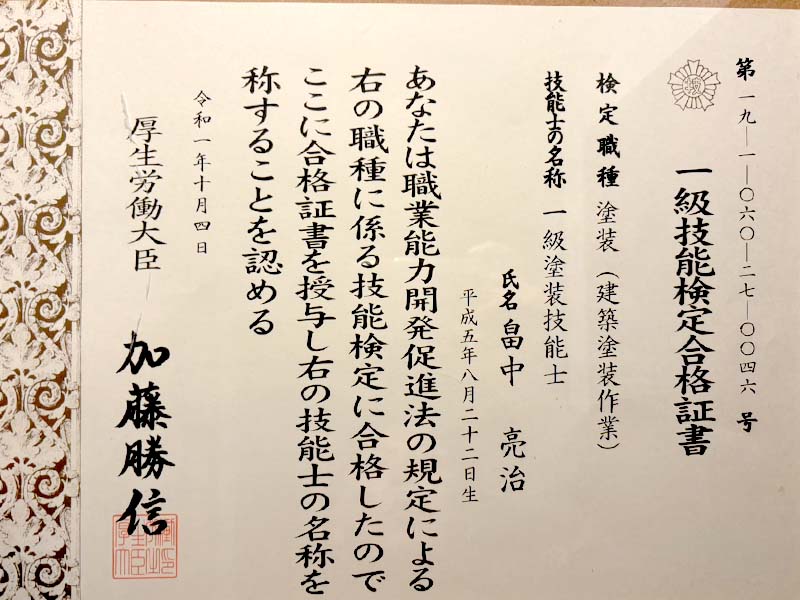 第一九—一—〇六〇—二七—〇〇四六号
一級技能検定合格証書
検定職種 塗装（建築塗装作業）
技能士の名称 一級塗装技能士
氏名 畠中 亮治
平成五年八月二十二日生
あなたは職業能力開発促進法の規定による
右の職種に係る技能検定に合格したので
ここに合格証書を授与し右の技能士の名称を
称することを認める
令和一年十月四日
厚生労働大臣 加藤勝信